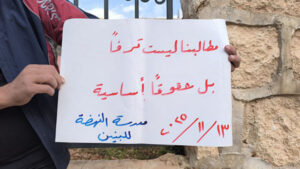 مطالبنا ليست ترفاً
بل حقوقاً أساسية
مدرسة النهضة
للبنين
٢٠٢٥/١١/١٣